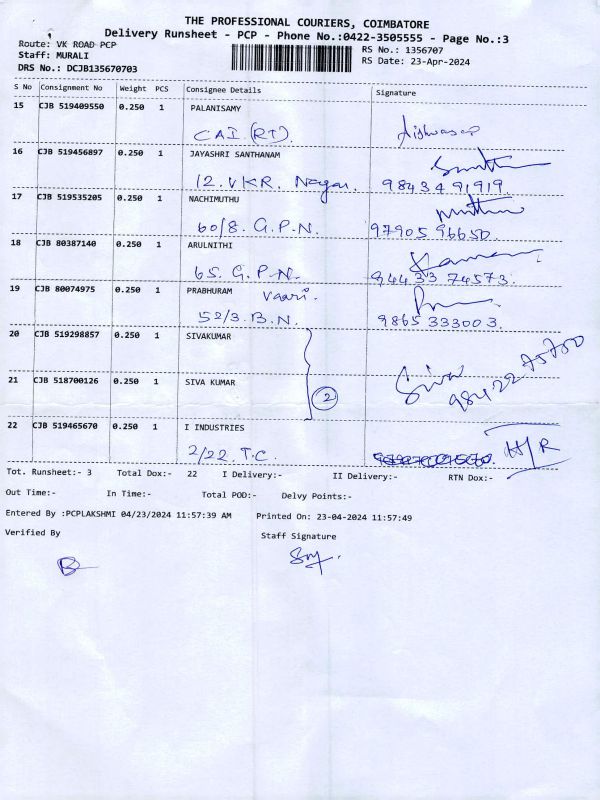 THE PROFESSIONAL COURIERS, COIMBATORE
Delivery Runsheet - PCP - Phone No.:0422-3505555 - Page No.:3
Route: VK ROAD PCP
RS No.: 1356707
Staff: MURALI
RS Date: 23-Apr-2024
DRS No.: DCJB135670703
S No Consignment No Weight PCS Consignee Details Signature
15 CJB 519409550 0.250 1 PALANISAMY
CAI (RT).
16 CJB 519456897 0.250 1 JAYASHRI SANTHANAM
12. VKR. Nagar. 98434 91919.
17 CJB 519535205 0.250 1 NACHIMUTHU
60/8. G.P.N. 97905 96650
18 CJB 80387140 0.250 1 ARULNITHI
65. G.P.N. 94433 74573.
19 CJB 80074975 0.250 1 PRABHURAM
Vaari.
52/3. B.N. 9865 333003.
20 CJB 519298857 0.250 1 SIVAKUMAR
21 CJB 518700126 0.250 1 SIVA KUMAR
2
Siva
22 CJB 519465670 0.250 1 I INDUSTRIES
2/22. T.C. H/R
Tot. Runsheet:- 3 Total Dox:- 22 I Delivery:- II Delivery:- RTN Dox:-
Out Time:- In Time:- Total POD:- Delvy Points:-
Entered By :PCPLAKSHMI 04/23/2024 11:57:39 AM Printed On: 23-04-2024 11:57:49
Verified By Staff Signature